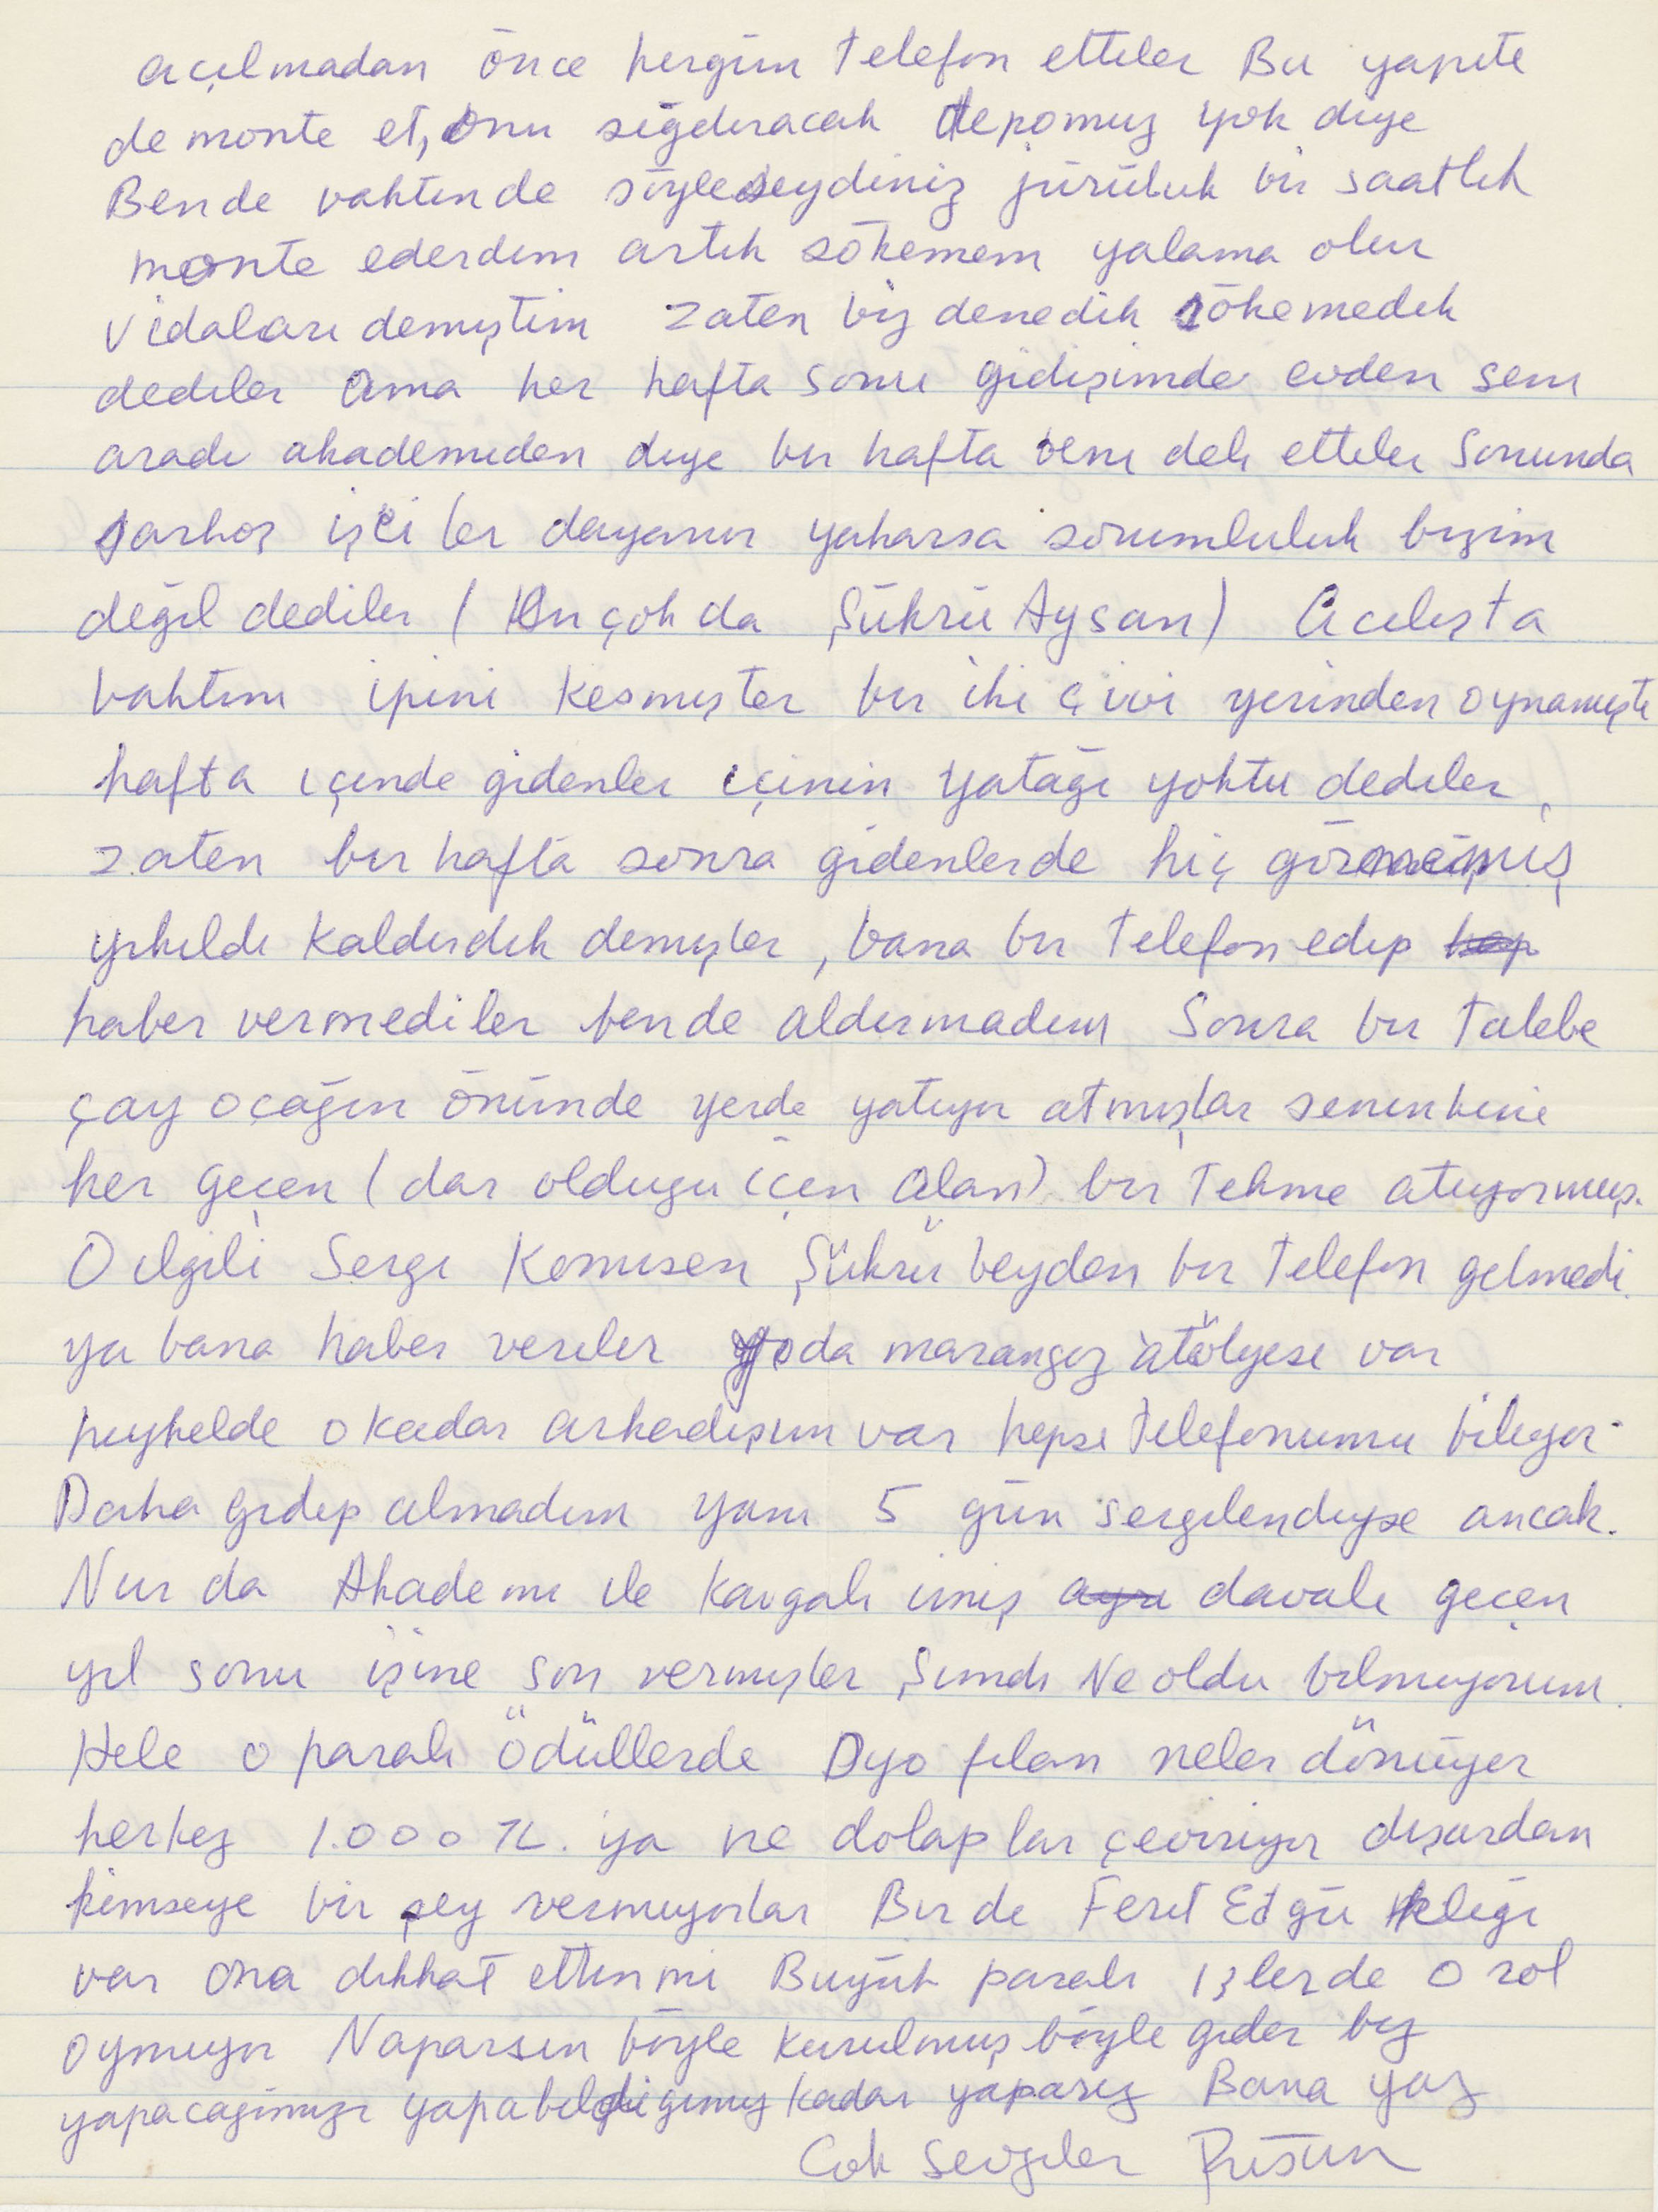 açılmadan önce hergün telefon ettiler Bu yapıtı
de monte et, onu sığdıracak depomuz yok diye
Bende vaktinde söyleseydiniz jürilik bir saatlik
monte ederdim artık sökemem yalama olur
vidaları demiştim zaten biz denedik sökemedik
dediler ama her hafta sonu gidişimde evden seni
aradı akademiden diye bir hafta beni deli ettiler Sonunda
sarhoş işçiler dayanır yakarsa sorumluluk bizim
değil dediler (En çok da Şükrü Aysan) Açılışta
baktım ipini kesmişler bir iki çivi yerinden oynamıştı
hafta içinde gidenler içinin yatağı yoktu dediler,
zaten bir hafta sonra gidenlerde hiç görmemiş
yıkıldı kaldırdık demişler, bana bir telefon edip
haber vermediler bende aldırmadım Sonra bir talebe
çay ocağın önünde yerde yatıyor atmışlar seninkini
her geçen (dar olduğu için alan) bir tekme atıyormuş.
O ilgili Sergi Komiseri Şükrü beyden bir telefon gelmedi.
ya bana haber verirler yada marangoz atölyesi var
heykelde o kadar arkadaşım var hepsi telefonumu biliyor.
Daha gidip almadım yani 5 gün sergilendiyse ancak.
Nur da Akademi ile kavgalı imiş davalı geçen
yıl sonu işine son vermişler Şimdi Ne oldu bilmiyorum.
Hele o paralı ödüllerde Dyo filan neler dönüyor
herkez 1.000 TL. ya ne dolaplar çeviriyor dışardan
kimseye bir şey vermiyorlar Bir de Ferit Edgü kliği
var ona dikkat ettin mi Büyük paralı işlerde o rol
oynuyor Naparsın böyle kurulmuş böyle gider biz
yapacağımızı yapabildiğimiz kadar yaparız Bana yaz
Çok Sevgiler Füsun